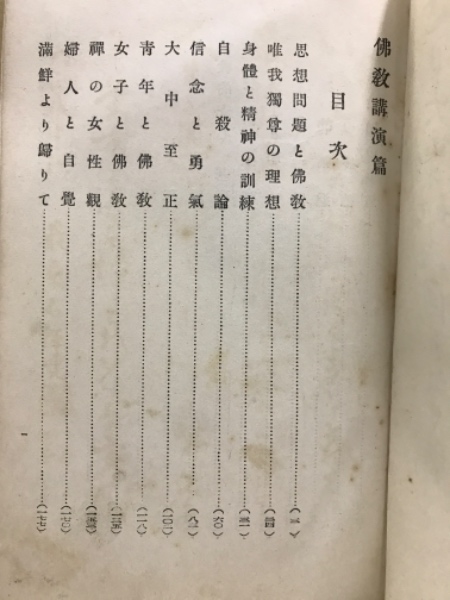 佛教講演篇
目次
思想問題と佛教
唯我獨尊の理想
身體と精神の訓練
自殺論
信念と勇氣
大中至正
青年と佛教
女子と佛教
禪の女性觀
婦人と自覺
滿鮮より歸りて